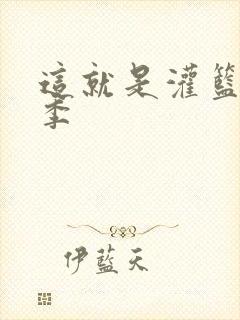 這就是灌籃
季
伊藍天